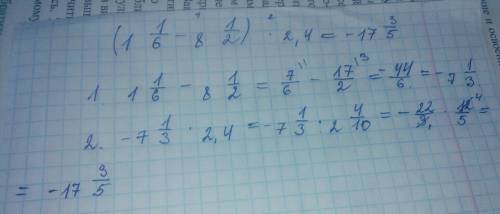 (1 1/6 - 8 1/2) · 2,4 = -17 3/5
1. 1 1/6 - 8 1/2 = 7/6 - 17/2 = -44/6 = -7 1/3
2. -7 1/3 · 2,4 = -7 1/3 · 2 4/10 = -22/3 · 12/5 =
= -17 3/5